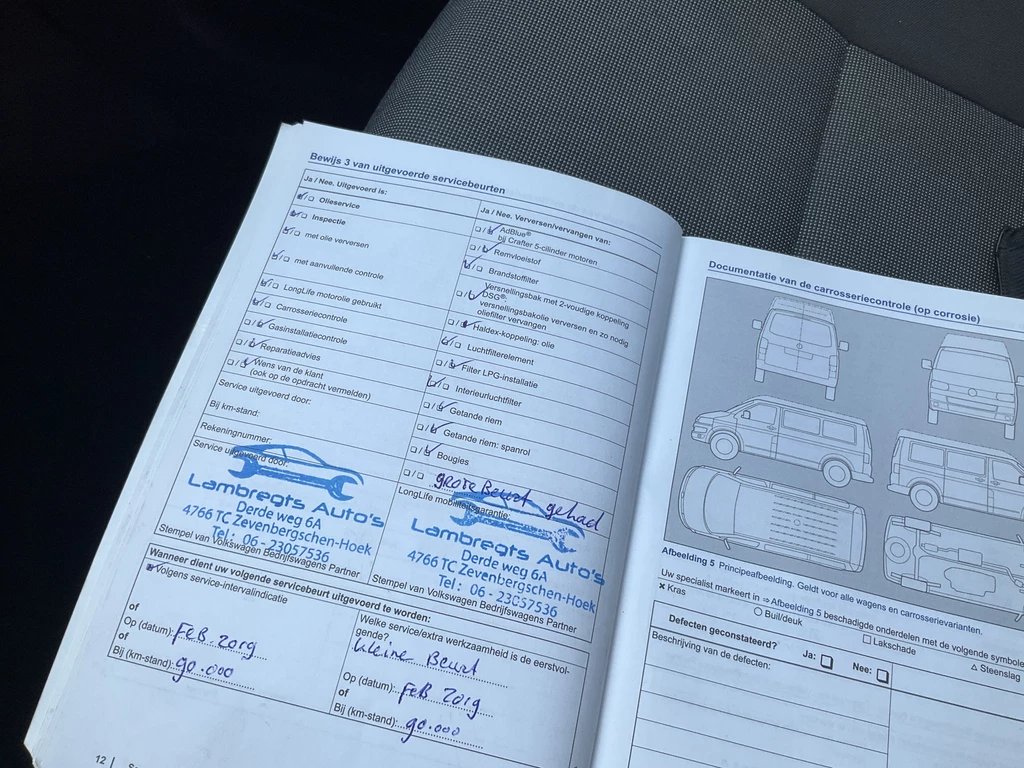 Bewijs 3 van uitgevoerde servicebeurten
Ja / Nee. Uitgevoerd is:
Olieservice
Inspectie
met olie verversen
met aanvullende controle
LongLife motorolie gebruikt
Carrosseriecontrole
Gasinstallatiecontrole
Reparatieadvies
Wens van de klant
(ook op de opdracht vermelden)
Service uitgevoerd door:
Bij km-stand:
Rekeningnummer:
Service uitgevoerd door:
Lambregts Auto's
Derde weg 6A
4766 TC Zevenbergschen-Hoek
Tel : 06 - 23057536
Stempel van Volkswagen Bedrijfswagens Partner
Ja / Nee. Verversen/vervangen van:
AdBlue®
bij Crafter 5-cilinder motoren
Remvloeistof
Brandstoffilter
Versnellingsbak met 2-voudige koppeling
DSG®:
versnellingsbakolie verversen en zo nodig
oliefilter vervangen
Haldex-koppeling: olie
Luchtfilterelement
Filter LPG-installatie
Interieurluchtfilter
Getande riem
Getande riem: spanrol
Bougies
grote Beurt gehad
LongLife mobiliteitsgarantie:
Lambregts Auto's
Derde weg 6A
4766 TC Zevenbergschen-Hoek
Tel : 06 - 23057536
Stempel van Volkswagen Bedrijfswagens Partner
Wanneer dient uw volgende servicebeurt uitgevoerd te worden:
Volgens service-intervalindicatie
of
Op (datum): FEB 2019
of
Bij (km-stand): 90.000
Welke service/extra werkzaamheid is de eerstvol-
gende?
kleine Beurt
Op (datum): FEB 2019
of
Bij (km-stand): 90.000
12
Documentatie van de carrosseriecontrole (op corrosie)
Afbeelding 5 Principeafbeelding. Geldt voor alle wagens en carrosserievarianten.
Uw specialist markeert in ⇒ Afbeelding 5 beschadigde onderdelen met de volgende
× Kras
○ Buil/deuk
□ Lakschade
△ Steenslag
Defecten geconstateerd?
Ja:
Nee:
Beschrijving van de defecten: